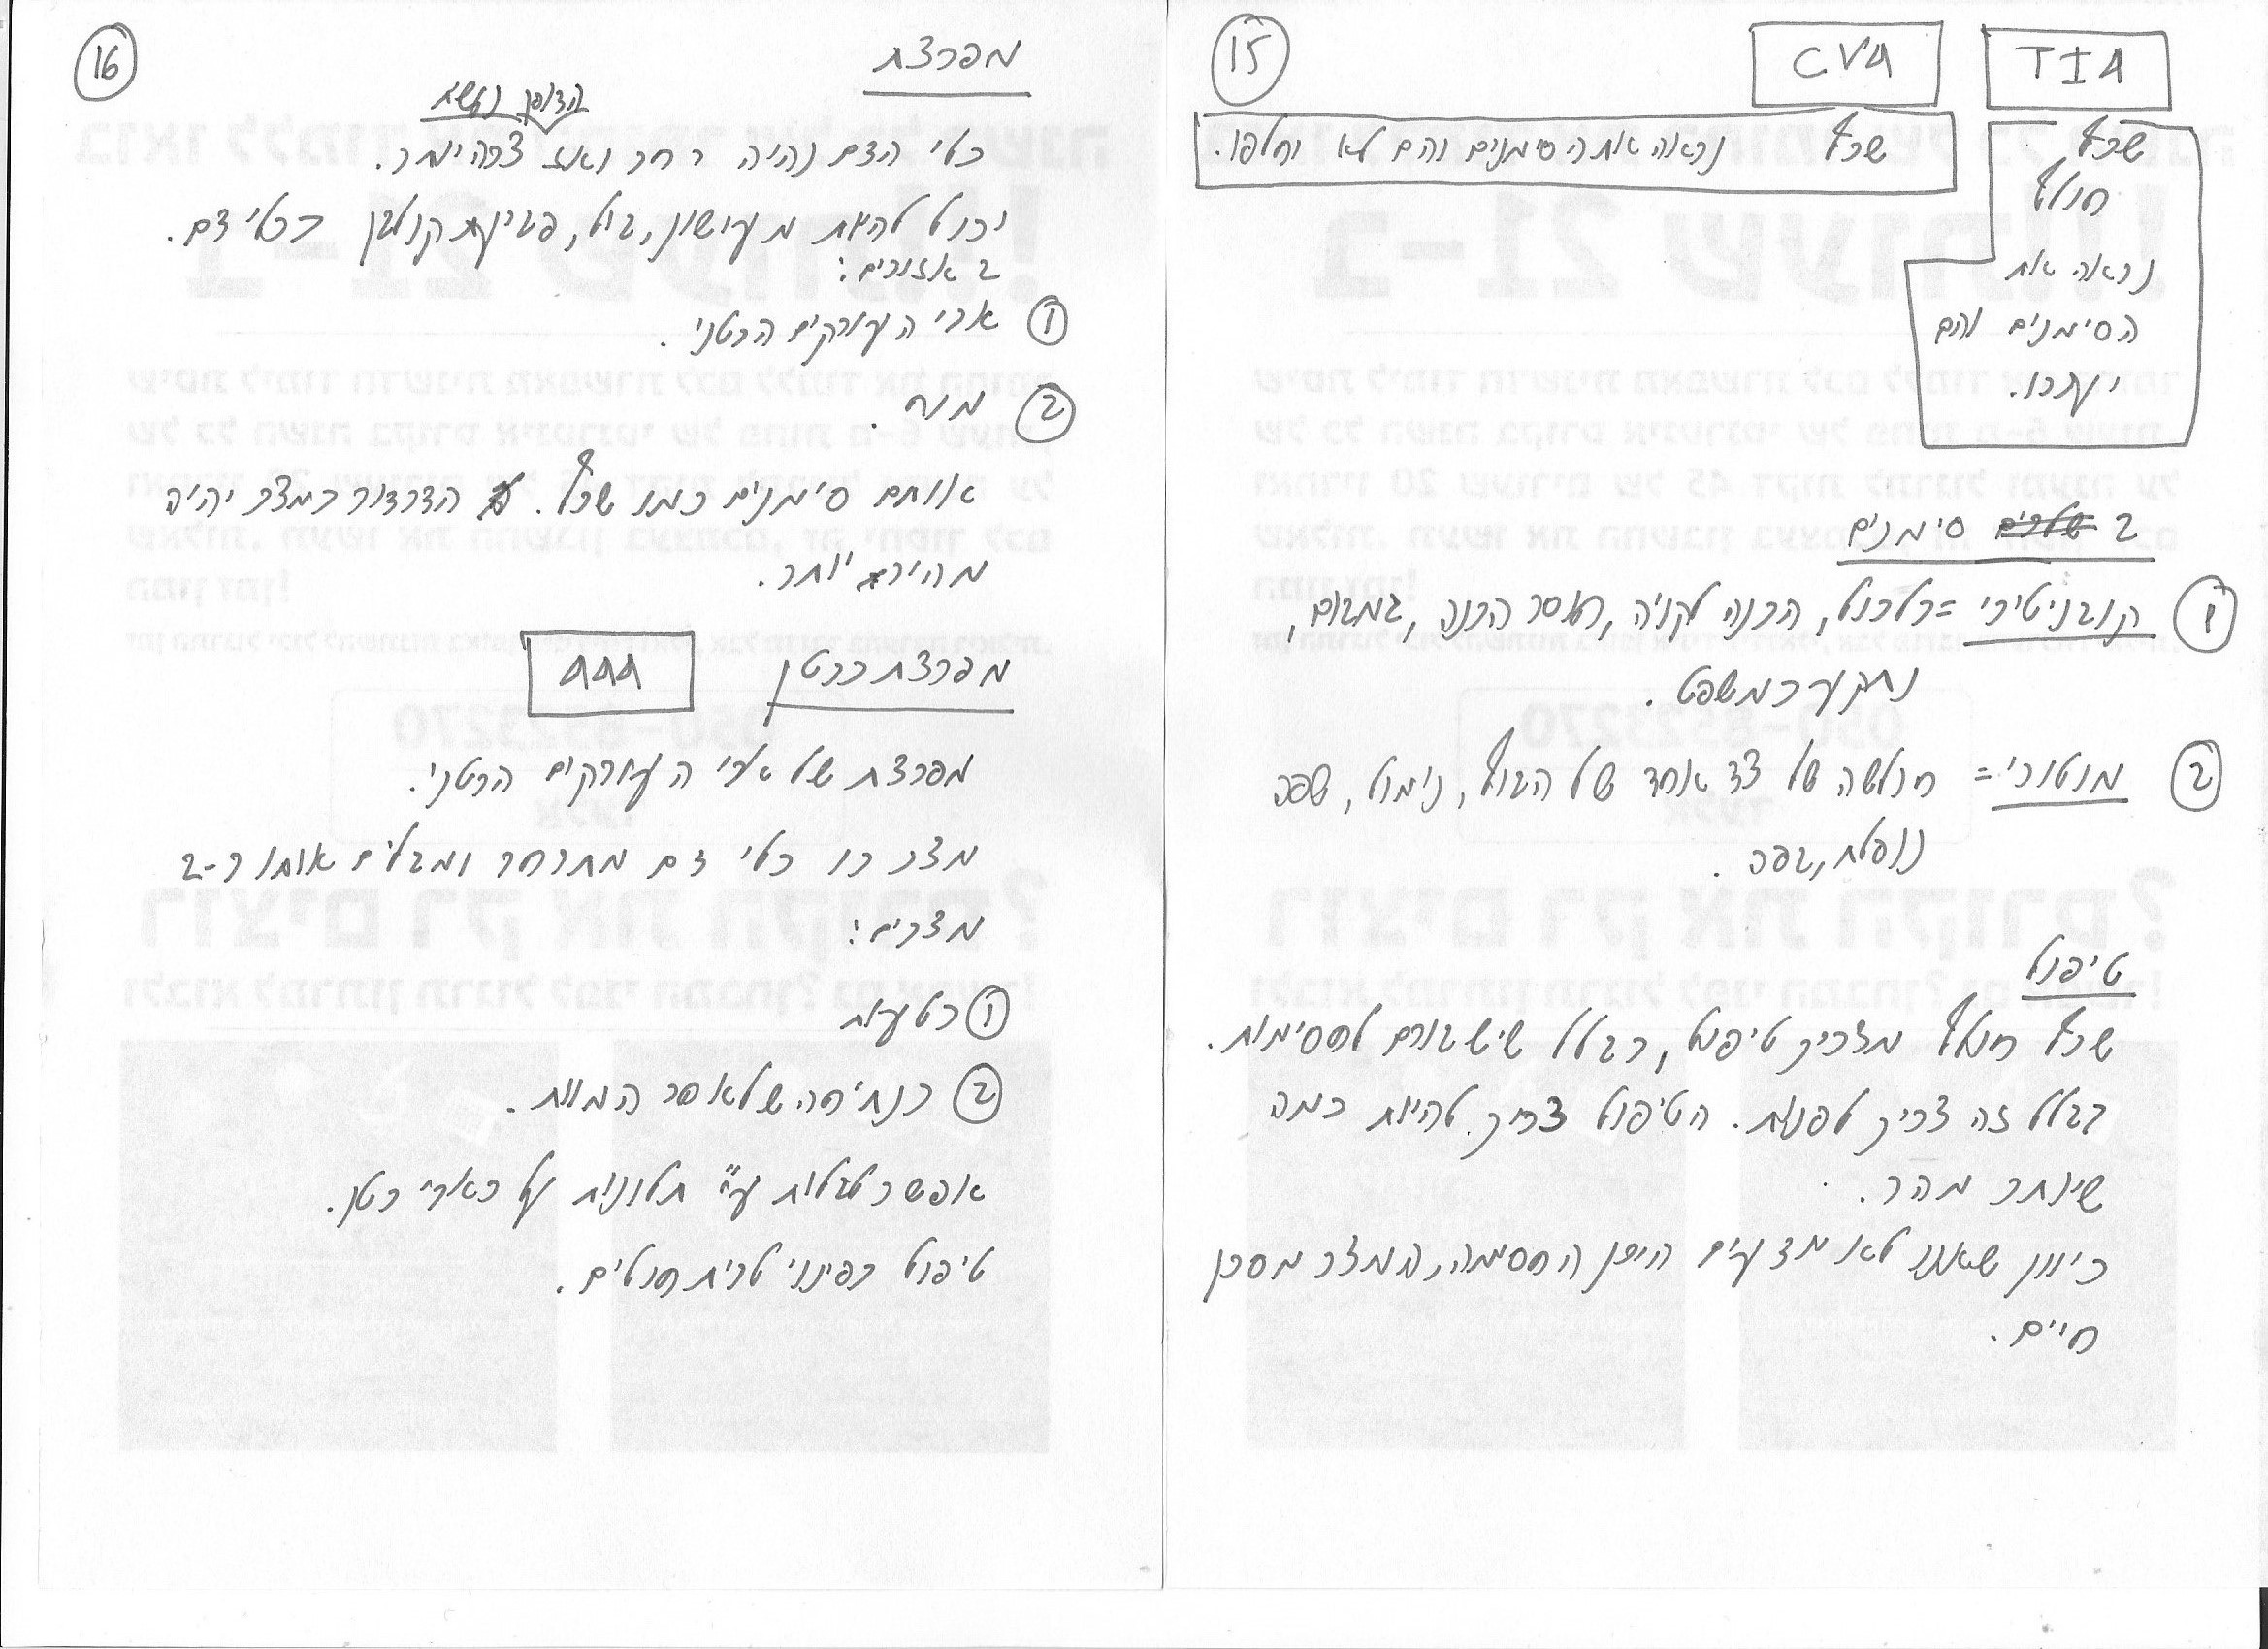 15
TIA
CVA
שבץ
חולף
נראה את
הסימנים והם
יעברו.
שבץ נראה את הסימנים והם לא יחלפו.
2 סימנים
1 קוגניטיבי = בלבול, הבנה לקויה, חוסר הבנה, גמגום,
נתקע במשפט.
2 מוטורי = חולשה של צד אחד של הגוף, נימול, שפה
נופלת, גפה.
טיפול
שבץ חולף מצריך טיפול, בגלל שיש גורם לחסימות.
בגלל זה צריך לפנות. הטיפול צריך להיות כמה
שיותר מהר.
כיוון שאנו לא יודעים היכן החסימה, המצב מסכן
חיים.
16
מפרצת
הדופן נעשית
כלי הדם נהיה רחב ואז צר היותר.
יכול להיות מעישון, גיל, פגיעת קולגן בכלי דם.
2 אזורים:
1 אבי העורקים הבטני.
2 מוח.
אותם סימנים כמו שבץ. הדרדור במצב יהיה
מהיר יותר.
מפרצת בבטן
AAA
מפרצת של אבי העורקים הבטני.
מצב בו כלי דם מתרחב ומגלים אותו ב-2
מצבים:
1 בטעות
2 בנתיחה שלאחר המוות.
אפשר לגלות ע"י תלונות על כאבי בטן.
טיפול בפינוי לבית חולים.